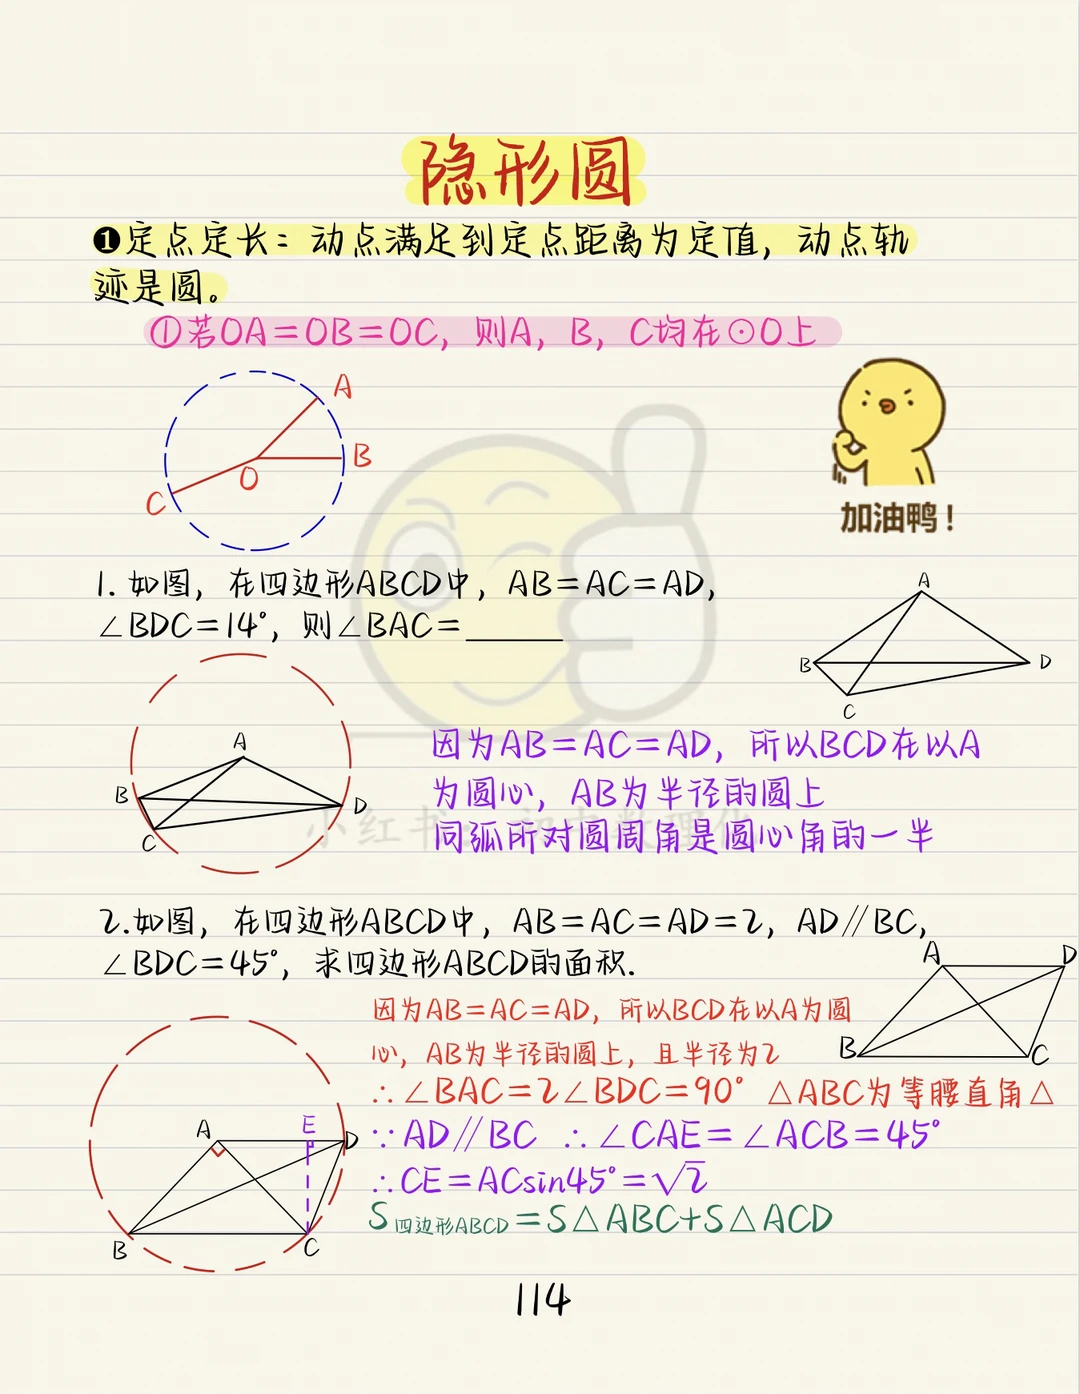 隐形圆
❶定点定长：动点满足到定点距离为定值，动点轨
迹是圆。
①若OA=OB=OC，则A，B，C均在⊙O上
A
B
O
C
加油鸭！
1. 如图，在四边形ABCD中，AB=AC=AD，
∠BDC=14°，则∠BAC=______
A
B
D
C
A
B
D
C
因为AB=AC=AD，所以BCD在以A
为圆心，AB为半径的圆上
同弧所对圆周角是圆心角的一半
小红书
2.如图，在四边形ABCD中，AB=AC=AD=2，AD∥BC，
∠BDC=45°，求四边形ABCD的面积.
A
D
B
C
因为AB=AC=AD，所以BCD在以A为圆
心，AB为半径的圆上，且半径为2
∴∠BAC=2∠BDC=90° △ABC为等腰直角△
∵AD∥BC ∴∠CAE=∠ACB=45°
∴CE=ACsin45°=√2
S四边形ABCD=S△ABC+S△ACD
A
E
D
B
C
114